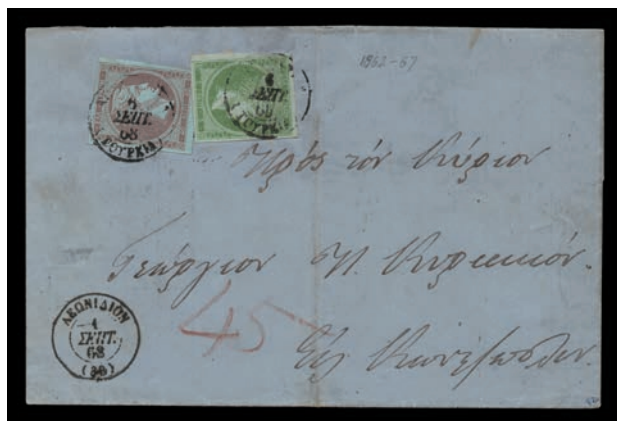 1862-67
6
ΣΕΠΤ.
68
(ΤΟΥΡΚΙΑ)
6
ΣΕΠΤ.
68
(ΤΟΥΡΚΙΑ)
Πρὸς τὸν Κύριον
Γεώργιον Π. Κυριακόν.
45
Εἰς Κωνσ/πολιν.
ΛΕΩΝΙΔΙΟΝ
1
ΣΕΠΤ.
68
(30)